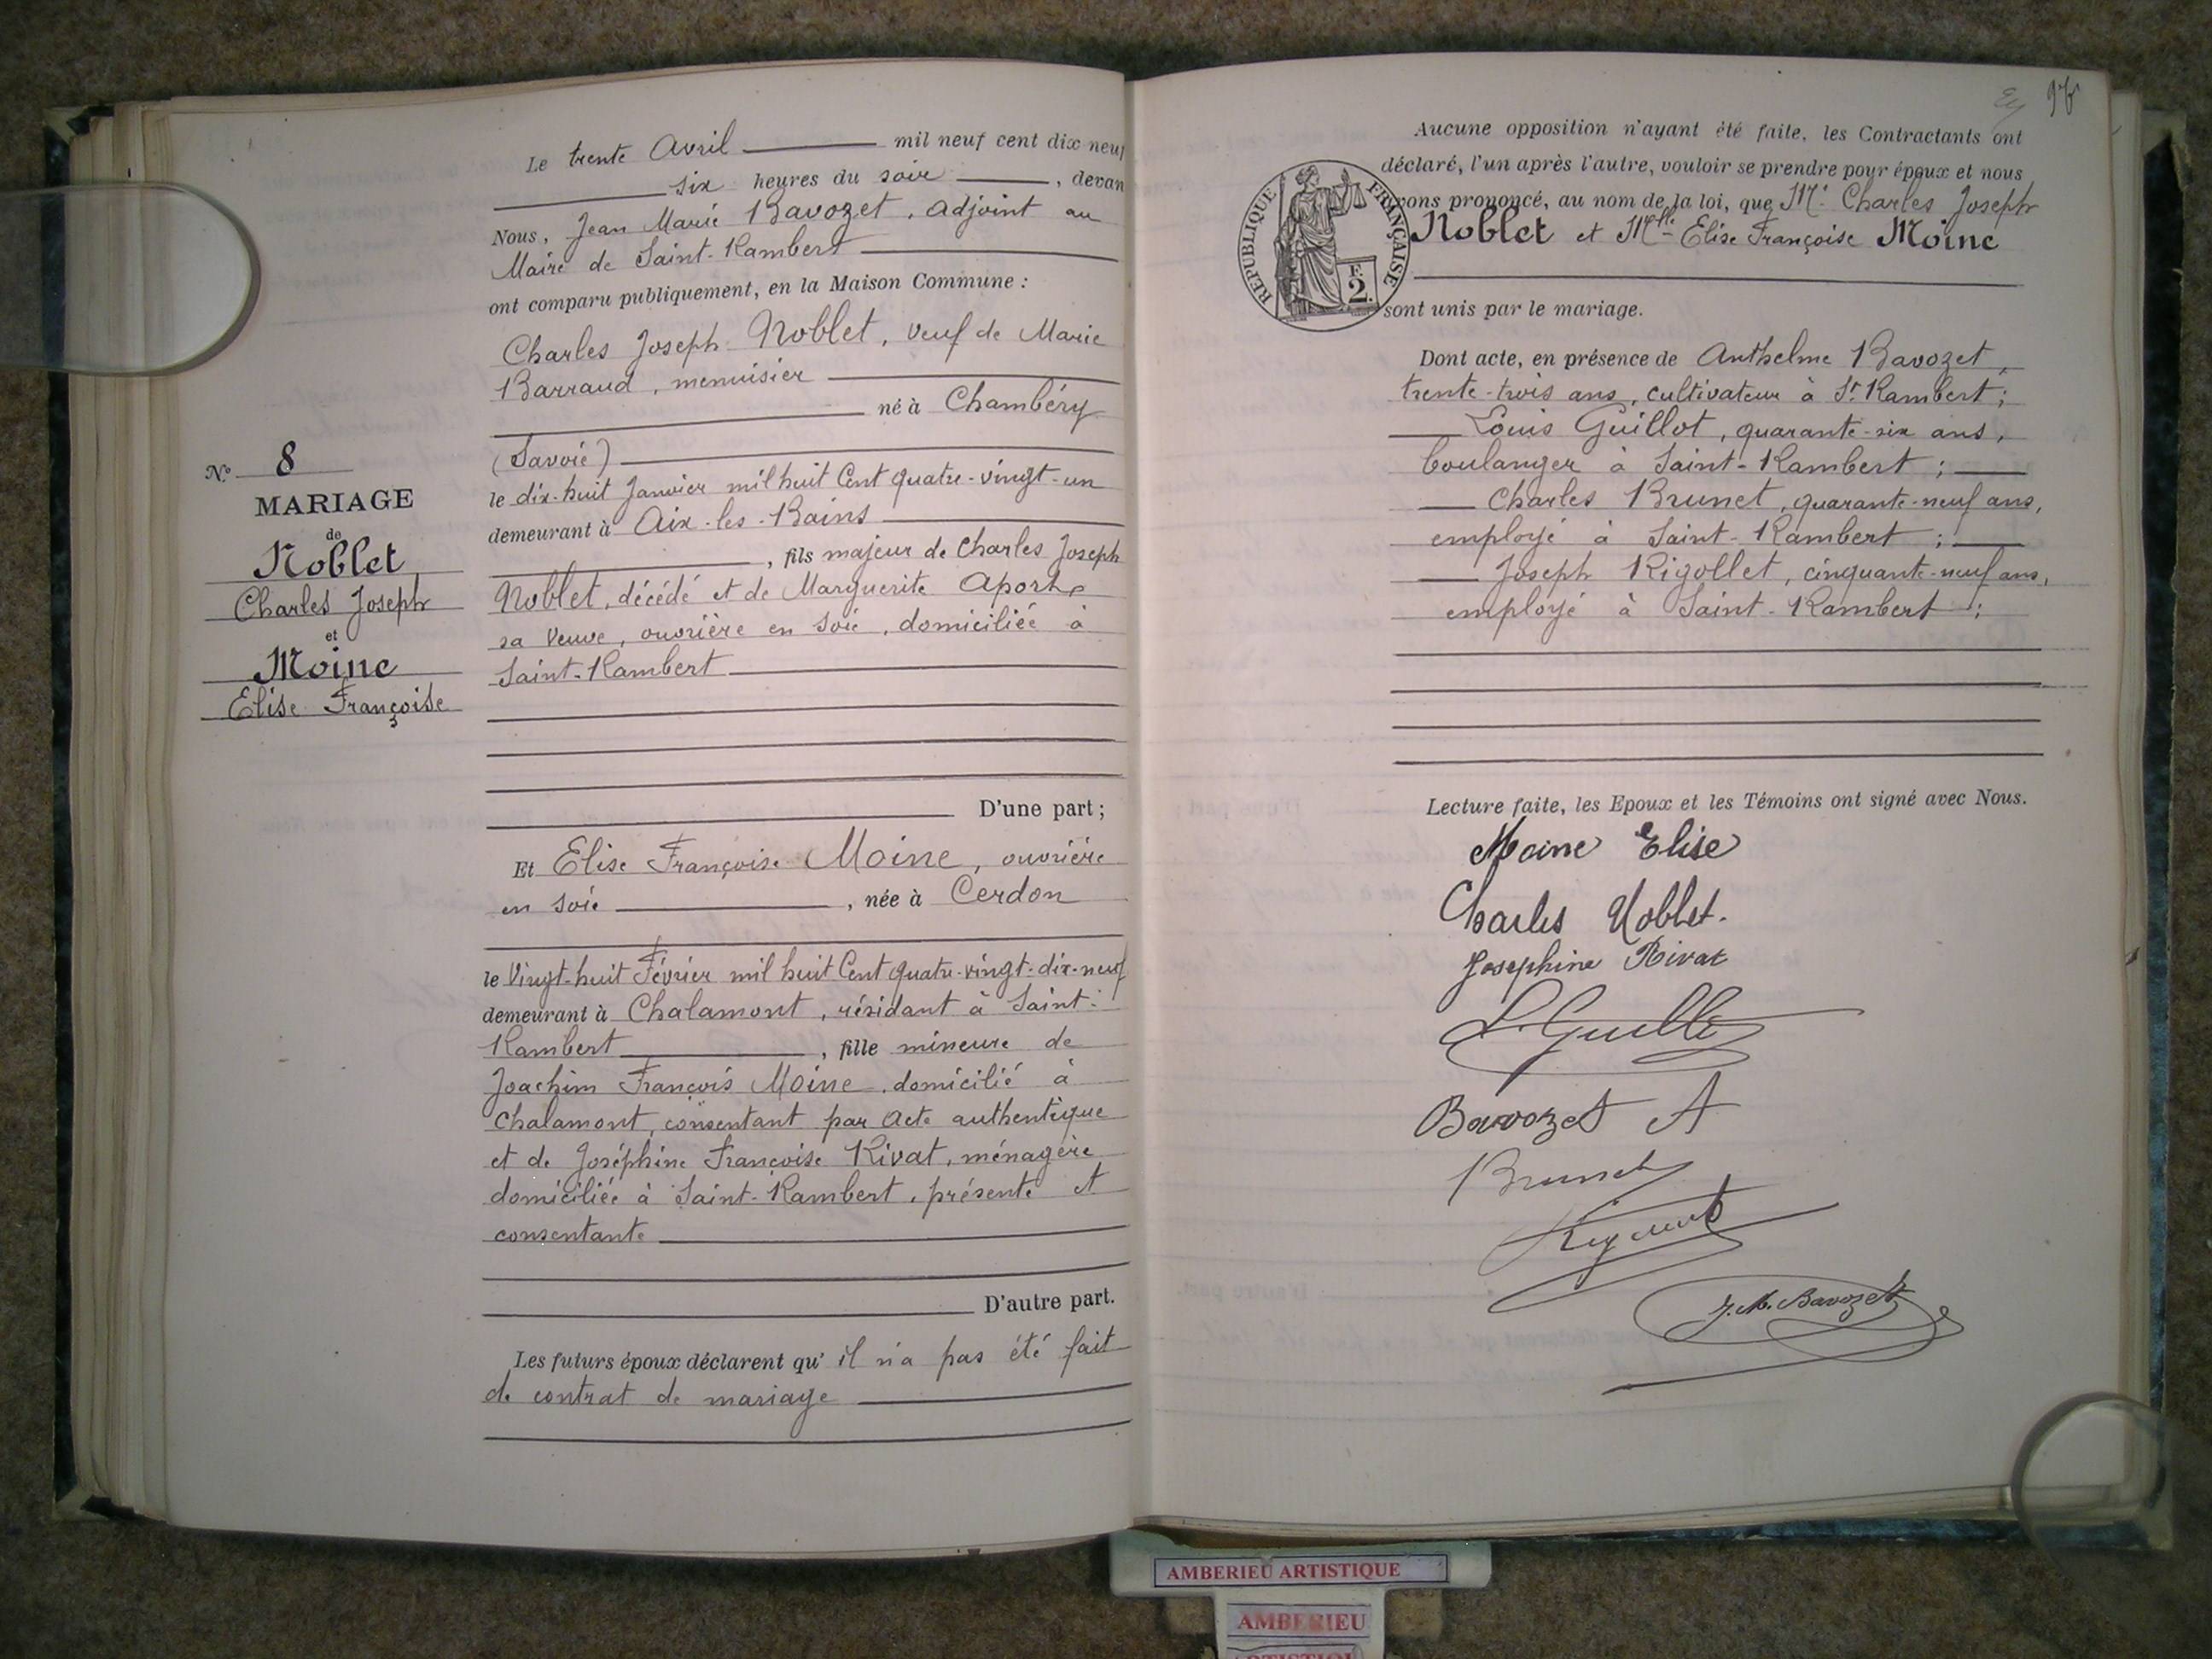 Le trente Avril mil neuf cent dix neuf
six heures du soir, devan
Nous, Jean Marie Bavozet, Adjoint au
Maire de Saint-Rambert
ont comparu publiquement, en la Maison Commune :
Charles Joseph Noblet, veuf de Marie
Barraud, menuisier
né à Chambéry
(Savoie)
le dix-huit Janvier mil huit Cent quatre-vingt-un
demeurant à Aix-les-Bains
, fils majeur de Charles Joseph
Noblet, décédé et de Marguerite Aporte
sa Veuve, ouvrière en soie, domiciliée à
Saint-Rambert
D'une part ;
N° 8
MARIAGE
de
Noblet
Charles Joseph
et
Moine
Elise Françoise
Et Elise Françoise Moine, ouvrière
en soie, née à Cerdon
le Vingt-huit Février mil huit Cent quatre-vingt-dix-neuf
demeurant à Chalamont, résidant à Saint-
Rambert, fille mineure de
Joachim François Moine, domicilié à
Chalamont, consentant par acte authentique
et de Joséphine Françoise Rivat, ménagère
domiciliée à Saint-Rambert, présente et
consentante
D'autre part.
Les futurs époux déclarent qu'il n'a pas été fait
de contrat de mariage
Aucune opposition n'ayant été faite, les Contractants ont
déclaré, l'un après l'autre, vouloir se prendre pour époux et nous
avons prononcé, au nom de la loi, que Mr Charles Joseph
Noblet et Mlle Elise Françoise Moine
RÉPUBLIQUE FRANÇAISE
F.
2.
sont unis par le mariage.
Dont acte, en présence de Anthelme Bavozet,
trente-trois ans, cultivateur à St Rambert ;
Louis Guillot, quarante-six ans,
boulanger à Saint-Rambert ;
Charles Brunet, quarante-neuf ans,
employé à Saint-Rambert ;
Joseph Rigollet, cinquante-neuf ans,
employé à Saint-Rambert ;
Lecture faite, les Epoux et les Témoins ont signé avec Nous.
Moine Elise
Charles Noblet.
Josephine Rivat
L. Guillot
Bavozet A
Brunet
J. M. Bavozet
AMBERIEU ARTISTIQUE
AMBERIEU
ARTISTIQUE